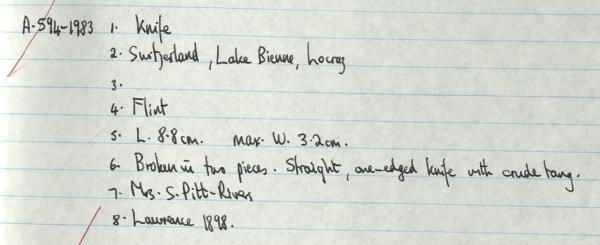 A·594-1983 1. Knife
2. Switzerland, Lake Bienne, Locraz
3.
4. Flint
5. L. 8·8cm. max. W. 3·2cm.
6. Broken in two pieces. Straight, one-edged knife with crude tang.
7. Mrs. S. Pitt-Rivers
8. Lawrence 1898.